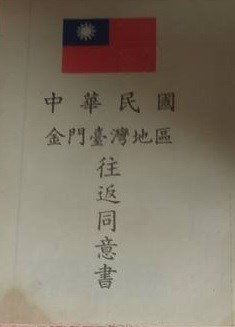 中華民國
金門臺灣地區
往返同意書